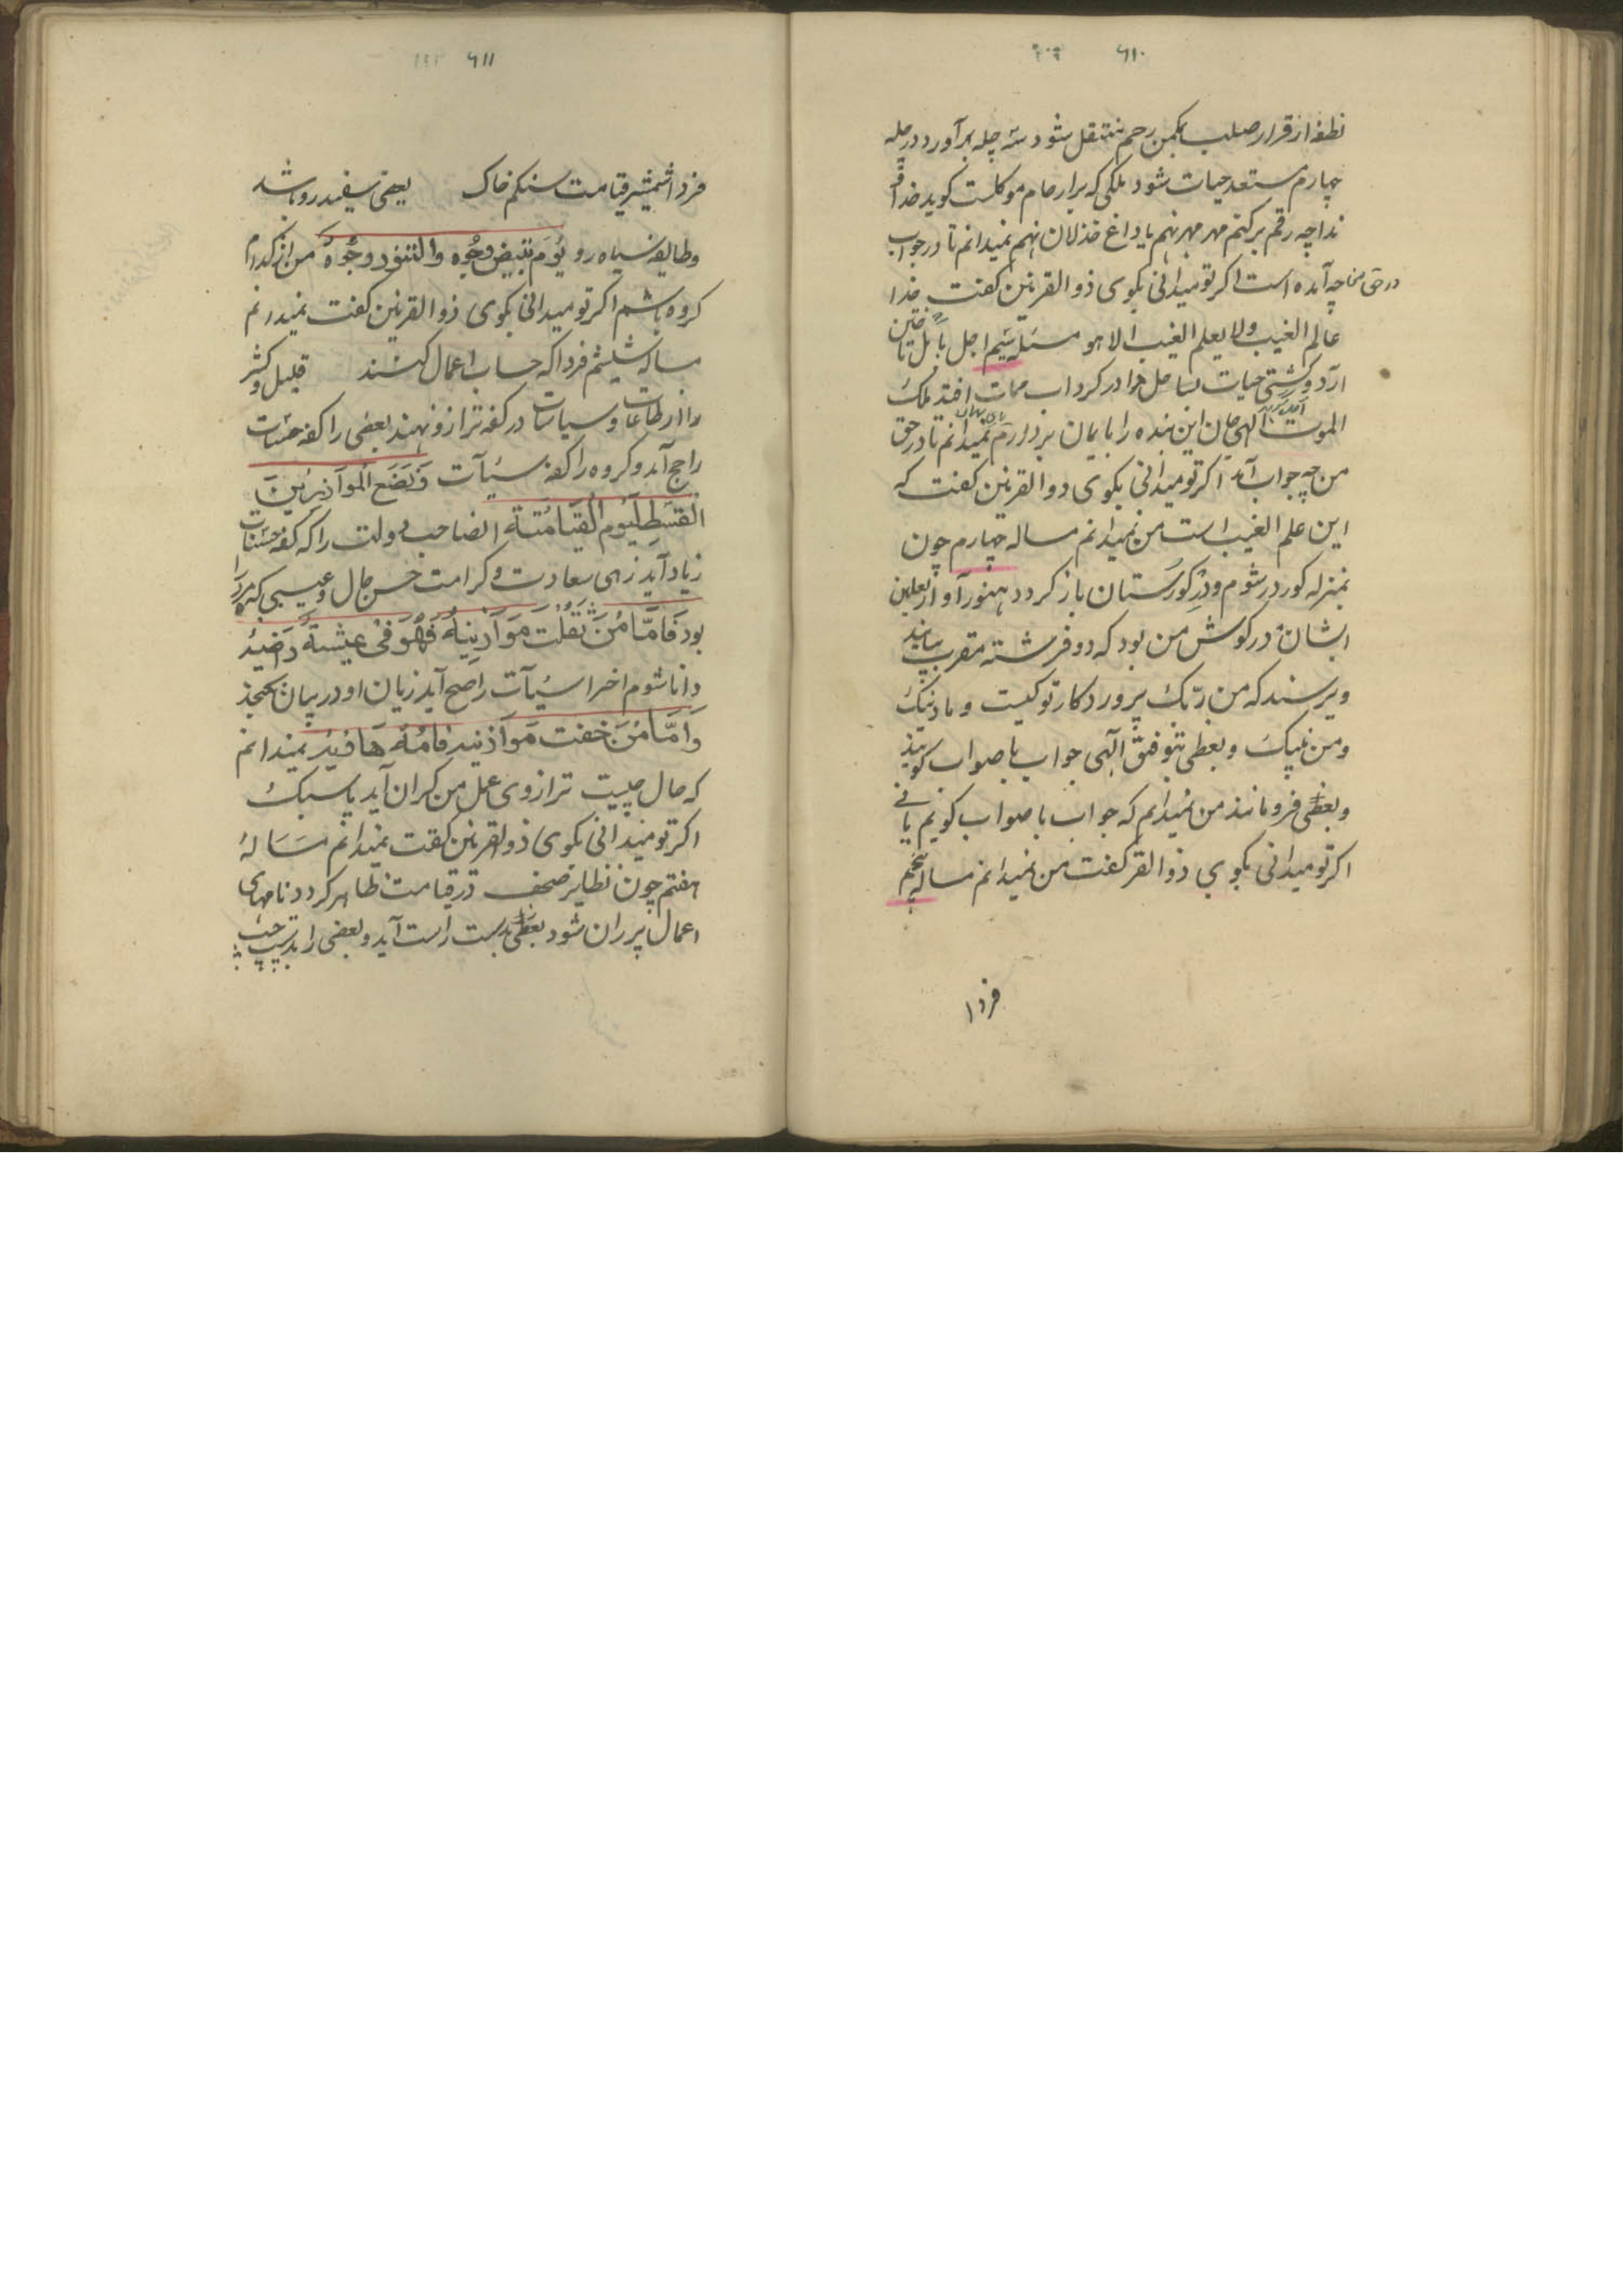 ۶۱۰
نطفه از قرار صلب بمکمن رحم منتقل شود سه چله برآورد در چله
چهارم مستعد حیات شود ملکی که بر ارحام موکلست کوید خداوندا
چه رقم برکنم مهر مهر نهم یا داغ خذلان نهم نمیدانم تا در جواب
در حق من چه آمده است اکر تو میدانی بکوی ذو القرنین کفت خدا
عالم الغیب ولا یعلم الغیب الا هو مسئله سیم اجل تاختن
آرد و کشتی حیات بساحل مرا در کرداب ممات افتد ملک
الموت الهی جان این بنده را با ایمان بردارم نمیدانم تا در حق
من چه جواب آمد اکر تو میدانی بکوی ذوالقرنین کفت که
این علم الغیب است من نمیدانم مساله چهارم چون
بمنزله کور در شوم و در کورستان باز کردد هنوز آواز نعلین
ایشان در کوش من بود که دو فرشته مقرب بیایند
و پرسند که من ربّک پروردکار تو کیست و ما دینک
ومن نبیک و بعظی بتوفیق الهی جواب با صواب کویند
و بعظی فرو مانند من نمیدانم که جواب با صواب کویم یا نی
اکر تو میدانی بکوی ذوالقر کفت من نمیدانم مساله پنجم
فردا
۶۱۱
فردا شمشیر قیامت سنکم خاک بعضی سفید رو باشد
و طایفه سیاه رو یَوم تبیض وجُوه والتسود وجُوهٌ من از کدام
کروه باشم اکر تو میدانی بکوی ذو القرنین کفت نمیدانم
مساله ششم فردا که حساب اعمال کنند قلیل و کثیر
را از طاعات و سیاسات در کفه ترازو نهند بعضی را کفه حسنات
راجح آید و کروه را کفه سیٔات وَنَضَع المَوَازِین
القسطِ لِیَوم القیَامَتة انصاحب دولت را که کفه حسنات
زیاد آید زهی سعادت و کرامت حسن حال و عیسی که مر او را
بود فَامّا مَن ثَقُلَت مَوَازِینهُ فَهُوَ فی عیشتهٌ رَضیهٌ
دانا شوم اخر اسیٔات راجح آید زیان او در بیان نکنجد
وَامّا مَن خفت مَوَازنیه فامُهُ هَافیه نمیدانم
که حال چیست ترازوی عمل من کران آید یا سبک
اکر تو میدانی بکوی ذوالقرنین کفت نمیدانم مسَالهٔ
هفتم چون نظایر صحف در قیامت ظاهر کردد نامهای
اعمال پرران شود بعظی بدست راست آید و بعضی را بدست چپ